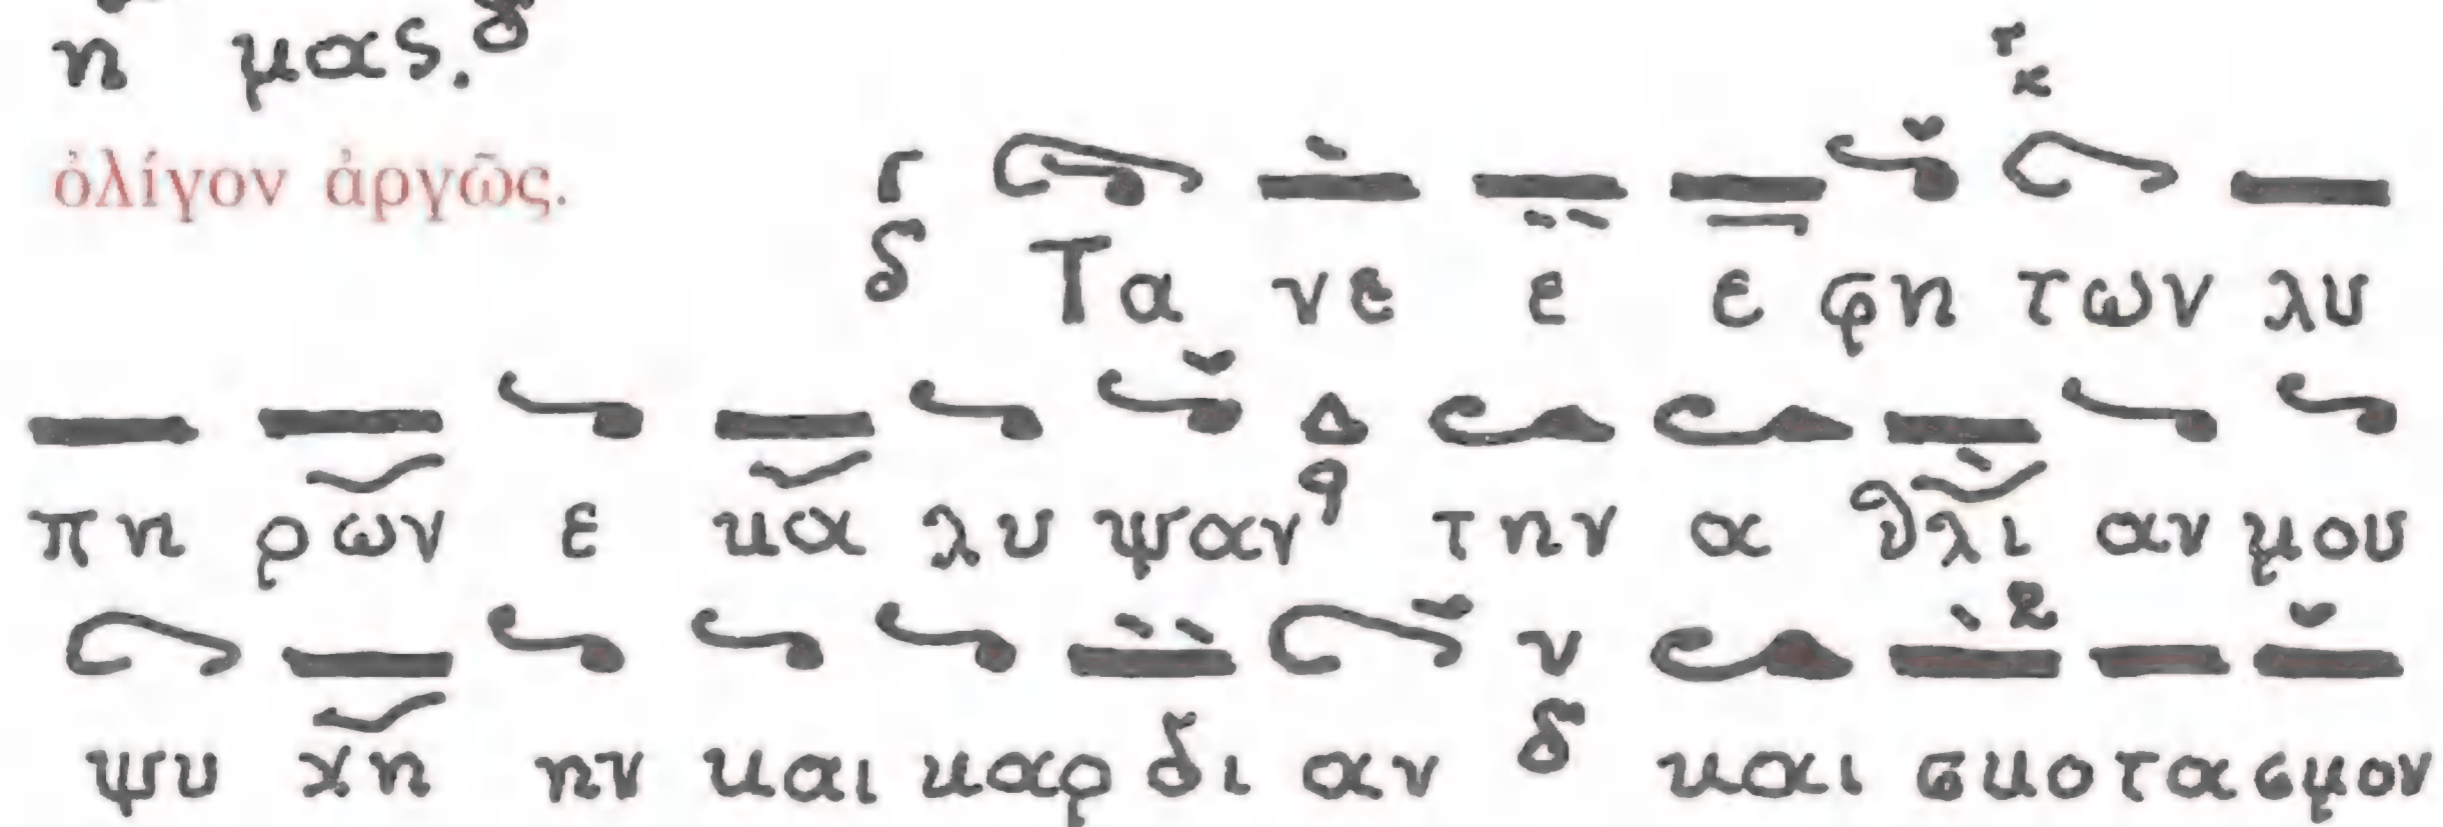 η μας. δ
ὀλίγον ἀργῶς.
Τα νε ε ε φη των λυ
πη ρων ε κα λυ ψαν την α θλι αν μου
ψυ χη ην και καρ δι αν δ και σκο τα σμον